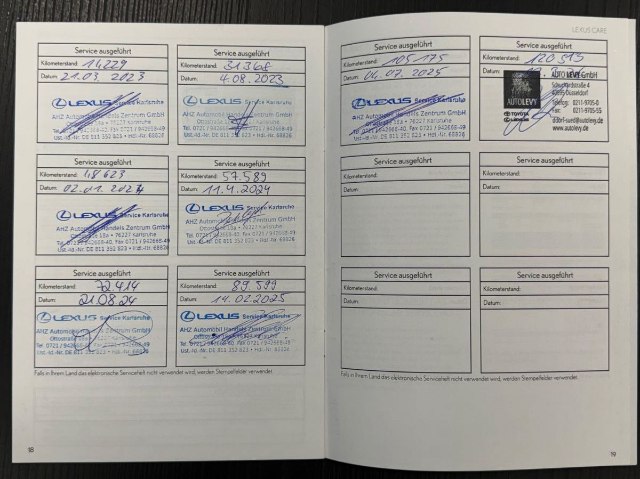 LEXUS CARE
Service ausgeführt
Kilometerstand: 14229
Datum: 21.03. 2023
LEXUS Service Karlsruhe
AHZ Automobil Handels Zentrum GmbH
Ottostraße 18a • 76227 Karlsruhe
Tel. 0721 / 942668-40, Fax 0721 / 942668-49
Ust.-Id.-Nr. DE 811 352 823 • Hdl.-Nr. 68826
Service ausgeführt
Kilometerstand: 31368
Datum: 4.08.2023
LEXUS Service Karlsruhe
AHZ Automobil Handels Zentrum GmbH
Ottostraße 18a • 76227 Karlsruhe
Tel. 0721 / 942668-40, Fax 0721 / 942668-49
Ust.-Id.-Nr. DE 811 352 823 • Hdl.-Nr. 68826
Service ausgeführt
Kilometerstand: 48623
Datum: 02.01.2024
LEXUS Service Karlsruhe
AHZ Automobil Handels Zentrum GmbH
Ottostraße 18a • 76227 Karlsruhe
Tel. 0721 / 942668-40, Fax 0721 / 942668-49
Ust.-Id.-Nr. DE 811 352 823 • Hdl.-Nr. 68826
Service ausgeführt
Kilometerstand: 57.589
Datum: 11.4.2024
LEXUS Service Karlsruhe
AHZ Automobil Handels Zentrum GmbH
Ottostraße 18a • 76227 Karlsruhe
Tel. 0721 / 942668-40, Fax 0721 / 942668-49
Ust.-Id.-Nr. DE 811 352 823 • Hdl.-Nr. 68826
Service ausgeführt
Kilometerstand: 72.414
Datum: 21.08.24
LEXUS Service Karlsruhe
AHZ Automobil Handels Zentrum GmbH
Ottostraße 18a • 76227 Karlsruhe
Tel. 0721 / 942668-40, Fax 0721 / 942668-49
Ust.-Id.-Nr. DE 811 352 823 • Hdl.-Nr. 68826
Service ausgeführt
Kilometerstand: 89.599
Datum: 14.02.2025
LEXUS Service Karlsruhe
AHZ Automobil Handels Zentrum GmbH
Ottostraße 18a • 76227 Karlsruhe
Tel. 0721 / 942668-40, Fax 0721 / 942668-49
Ust.-Id.-Nr. DE 811 352 823 • Hdl.-Nr. 68826
Falls in Ihrem Land das elektronische Serviceheft nicht verwendet wird, werden Stempelfelder verwendet.
18
Service ausgeführt
Kilometerstand: 105 175
Datum: 07.2025
LEXUS Service Karlsruhe
AHZ Automobil Handels Zentrum GmbH
Ottostraße 18a • 76227 Karlsruhe
Tel. 0721 / 942668-40, Fax 0721 / 942668-49
Ust.-Id.-Nr. DE 811 352 823 • Hdl.-Nr. 68826
Service ausgeführt
Kilometerstand: 120 513
Datum:
AUTO LEVY GmbH
40595 Düsseldorf
Telefon: 0211-9705-0
Fax: 0211-9705-55
ddorf-sued@autolevy.de
www.autolevy.de
AUTOLEVY
TOYOTA
LEXUS
Service ausgeführt
Kilometerstand:
Datum:
Service ausgeführt
Kilometerstand:
Datum:
Service ausgeführt
Kilometerstand:
Datum:
Service ausgeführt
Kilometerstand:
Datum:
Falls in Ihrem Land das elektronische Serviceheft nicht verwendet wird, werden Stempelfelder verwendet.
19